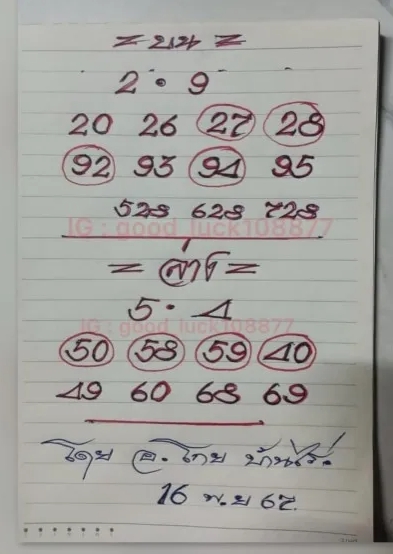 = บน =
2 • 9
20 26 27 28
92 93 94 95
528 628 728
IG : good_luck108877
= ล่าง =
5 • 4
IG : good_luck108877
50 58 59 40
49 60 68 69
โดย อ. ไกย บ้านไร่.
16 พ.ย 67